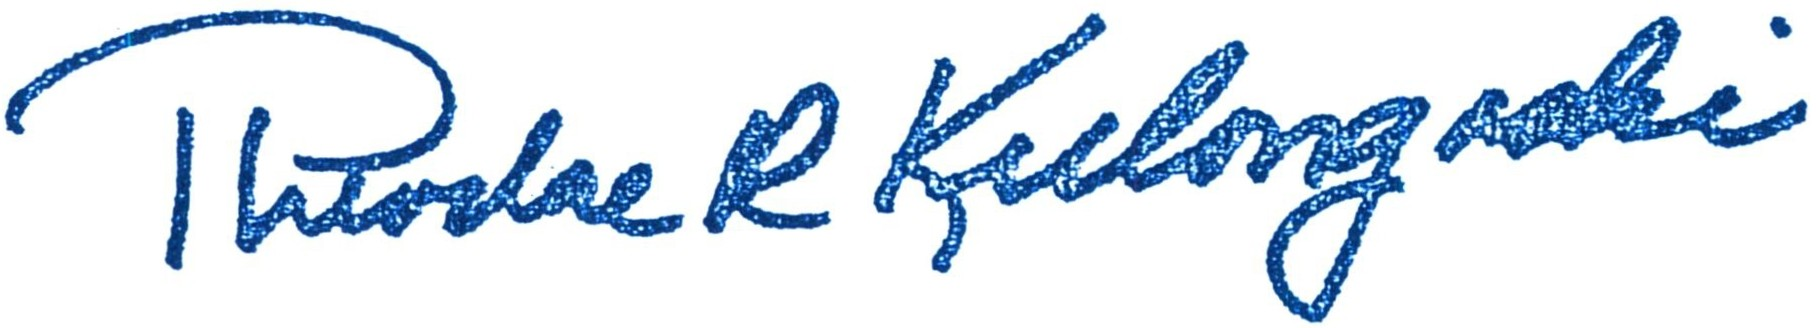 Theodore R Kulongoski